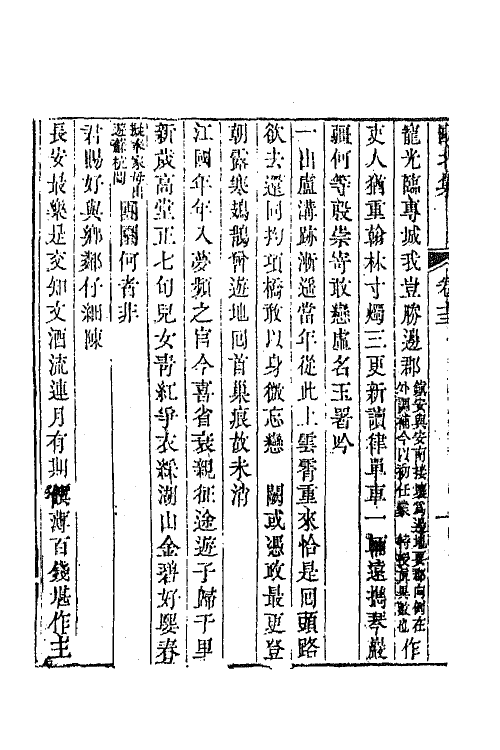 甌北集 卷十三
寵光臨專城我豈勝邊郡鎮安與安南接壤為邊地要郡向例在外調補今以初任蒙 特授眞異數也作
吏人猶重翰林寸燭三更新讀律單車一輛遠攜琴嚴
疆何等殷崇寄敢戀虛名玉署吟
一出盧溝跡漸遥當年從此上雲霄重來恰是囘頭路
欲去還同拘項橋敢以身微忘戀 闕或憑政最更登
朝露寒鳷鵲曾遊地囘首巢痕故未消
江國年年入夢頻之官今喜省衰親征途遊子歸千里
新歲高堂正七旬兒女靑紅爭衣綵湖山金碧好娛春
擬乘家母出遊蘇杭間團圞何者非
君賜好與鄉鄰仔細陳
長安最樂是交知文酒流連月有期饌薄百錢堪作主